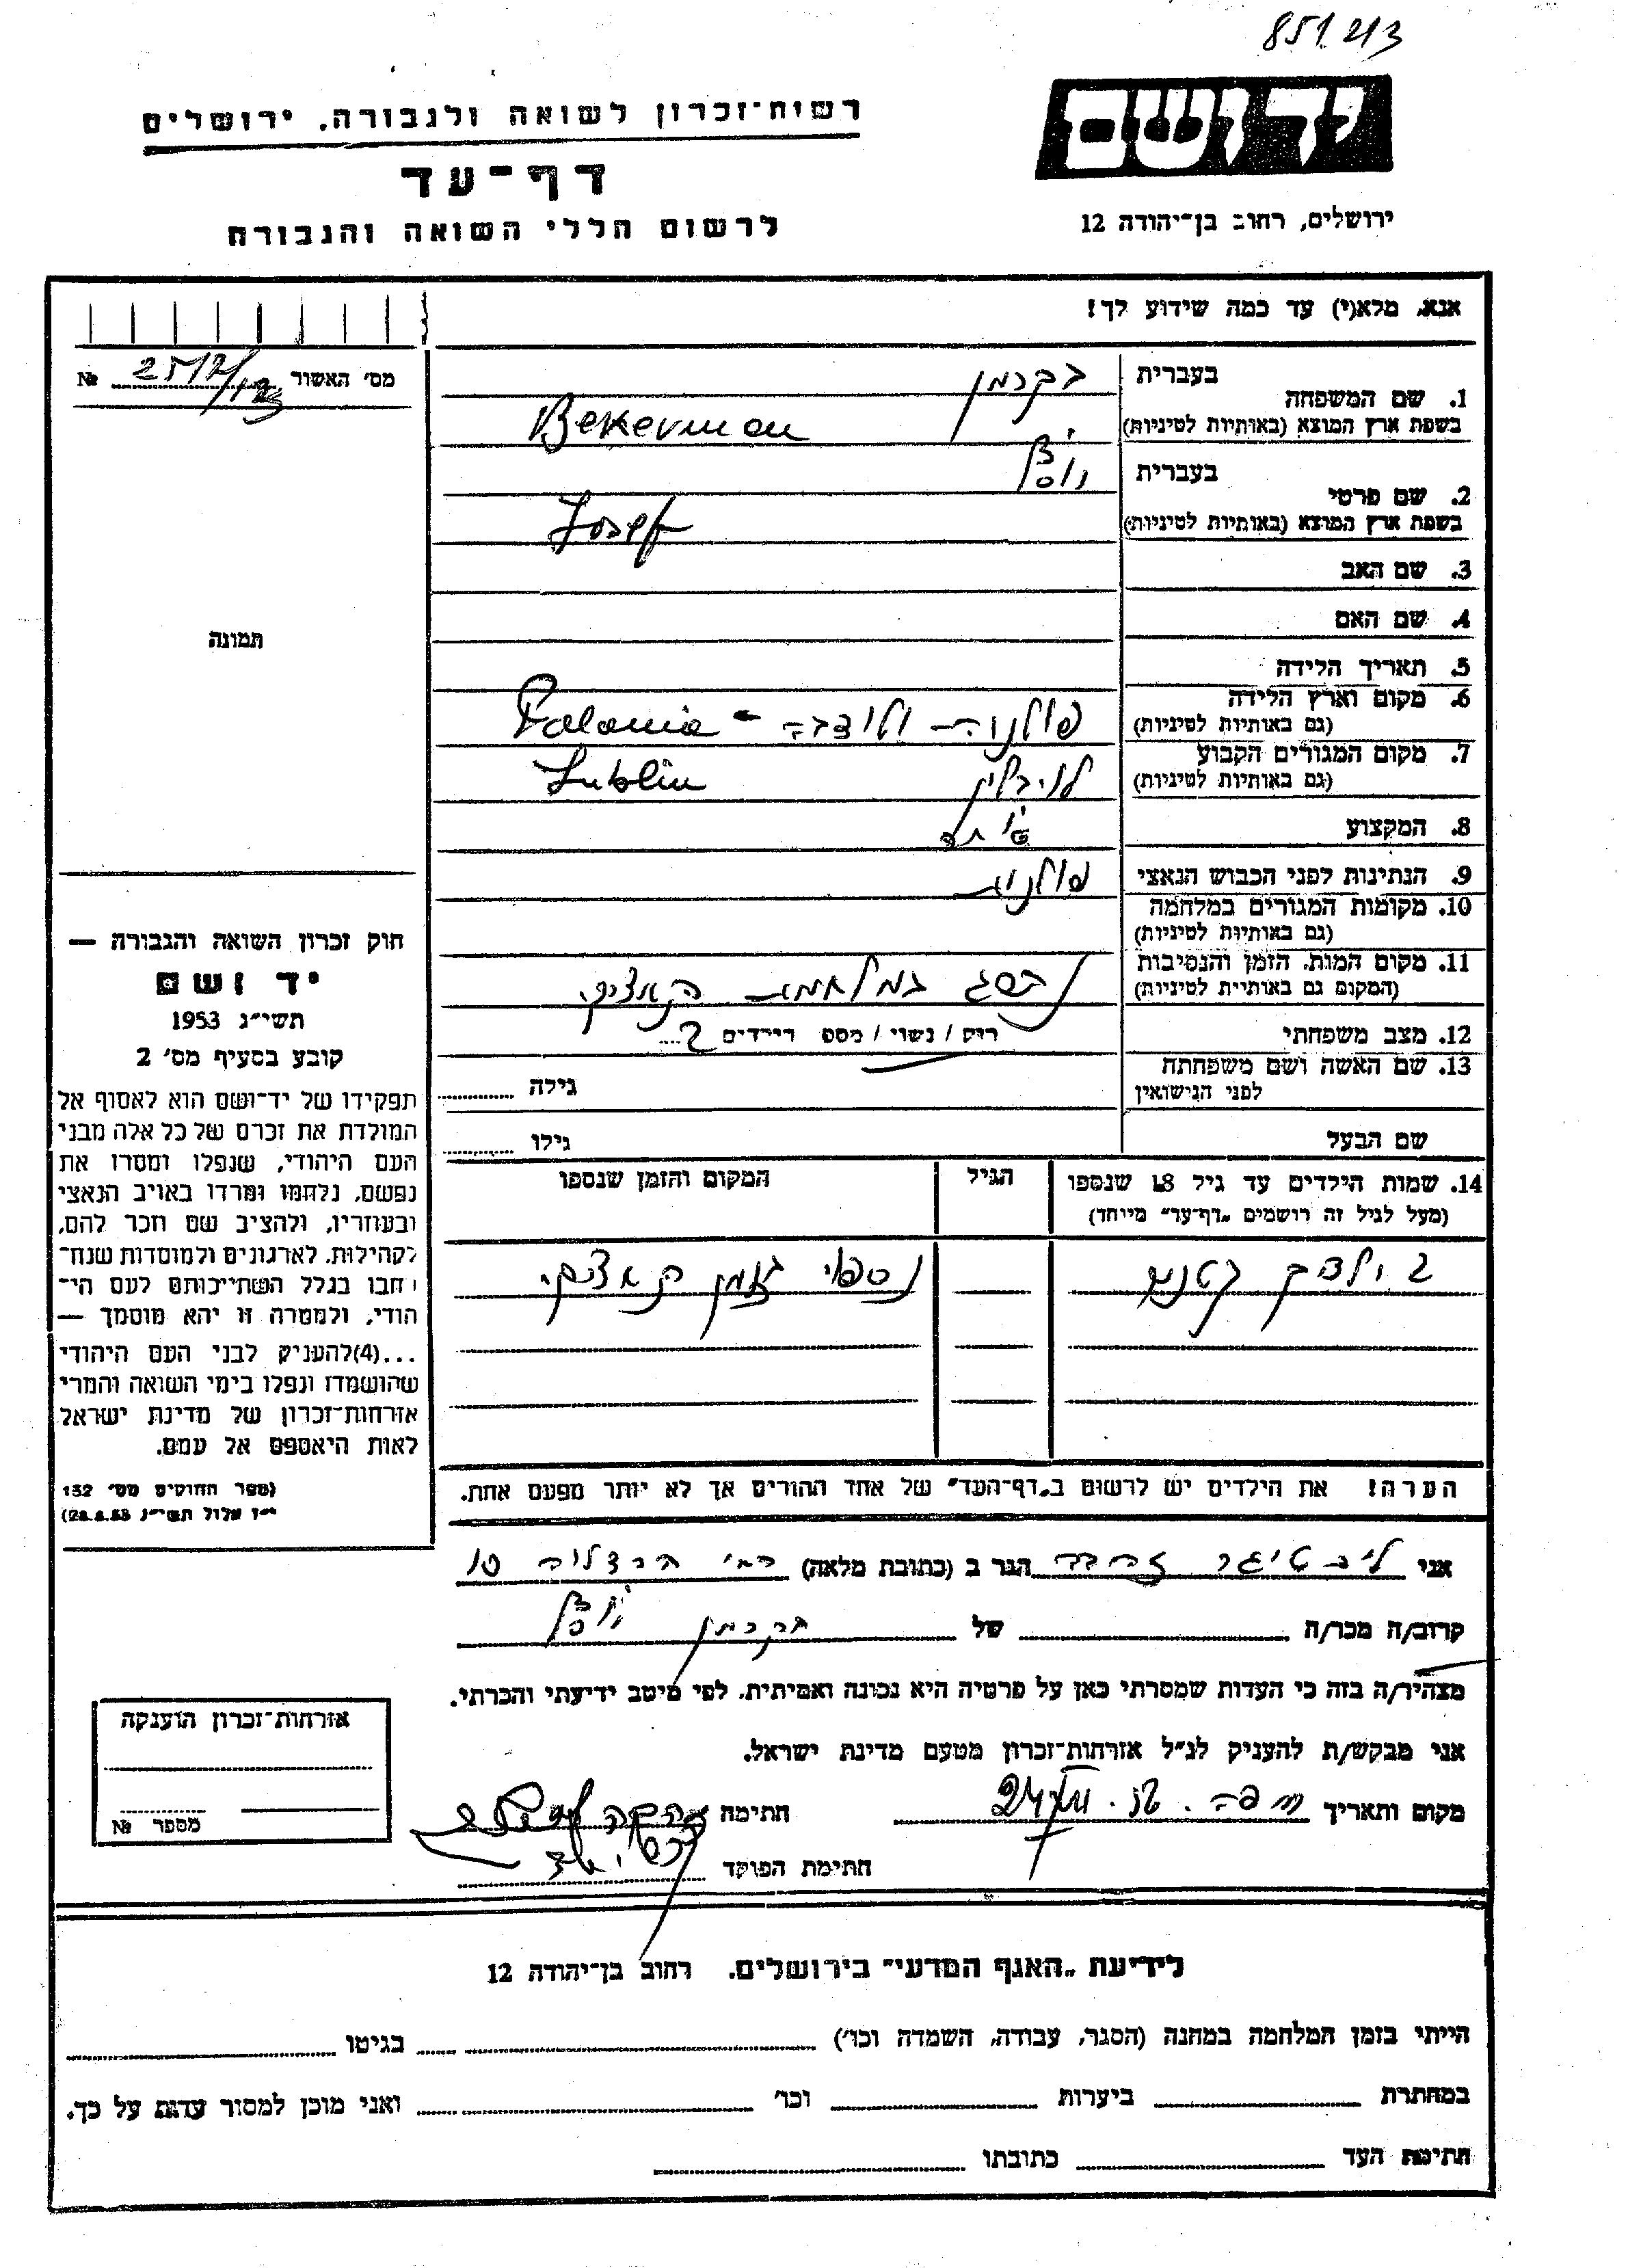 851213
רשות־זכרון לשואה ולגבורה, ירושלים
יד ושם
דף־עד
לרשום חללי השואה והגבורה
ירושלים, רחוב בן־יהודה 12
אנא, מלא(י) עד כמה שידוע לך!
מס׳ האשור № 2512/123
1. שם המשפחה בעברית בקרמן
בשפת ארץ המוצא (באותיות לטיניות) Bekerman
2. שם פרטי בעברית יוסף
בשפת ארץ המוצא (באותיות לטיניות) Josef
3. שם האב
4. שם האם
תמונה
5. תאריך הלידה
6. מקום וארץ הלידה
(גם באותיות לטיניות) פולניה Polonia
7. מקום המגורים הקבוע
(גם באותיות לטיניות) לובלין Lublin
8. המקצוע
9. הנתינות לפני הכבוש הנאצי פולנית
10. מקומות המגורים במלחמה
(גם באותיות לטיניות)
11. מקום המות, הזמן והנסיבות
(המקום גם באותיות לטיניות) במלחמת הנאצים
12. מצב משפחתי רווק / נשוי / מספר הילדים 2
13. שם האשה ושם משפחתה
לפני הנישואין גילה
שם הבעל גילו
חוק זכרון השואה והגבורה —
יד ושם
תשי״ג 1953
קובע בסעיף מס׳ 2
תפקידו של יד־ושם הוא לאסוף אל
המולדת את זכרם של כל אלה מבני
העם היהודי, שנפלו ומסרו את
נפשם, נלחמו ומרדו באויב הנאצי
ובעוזריו, ולהציב שם וזכר להם,
לקהילות, לארגונים ולמוסדות שנח־
רבו בגלל השתייכותם לעם הי־
הודי, ולמטרה זו יהא מוסמך —
...(4)להעניק לבני העם היהודי
שהושמדו ונפלו בימי השואה והמרי
אזרחות־זכרון של מדינת ישראל
לאות היאספם אל עמם.
(ספר החוקים מס׳ 132
י״ז אלול תשי״ג 28.8.53)
14. שמות הילדים עד גיל 18 שנספו הגיל המקום והזמן שנספו
(מעל לגיל זה רושמים „דף־עד״ מיוחד)
2 ילדים קטנים נספו בזמן הנאצים
הערה! את הילדים יש לרשום ב„דף־העד״ של אחד ההורים אך לא יותר מפעם אחת.
אני זהבה הגר ב (כתובת מלאה) רח׳ הרצליה 10
קרוב/ה מכר/ה של בקרמן יוסף
מצהיר/ה בזה כי העדות שמסרתי כאן על פרטיה היא נכונה ואמיתית, לפי מיטב ידיעתי והכרתי.
אני מבקש/ת להעניק לנ״ל אזרחות־זכרון מטעם מדינת ישראל.
מקום ותאריך חיפה חתימה זהבה
חתימת הפוקד
אזרחות־זכרון הוענקה
מספר №
לידיעת „האגף המדעי״ בירושלים, רחוב בן־יהודה 12
הייתי בזמן המלחמה במחנה (הסגר, עבודה, השמדה וכו׳) בגיטו
במחתרת ביערות וכו׳ ואני מוכן למסור עדות על כך.
חתימת העד כתובתו